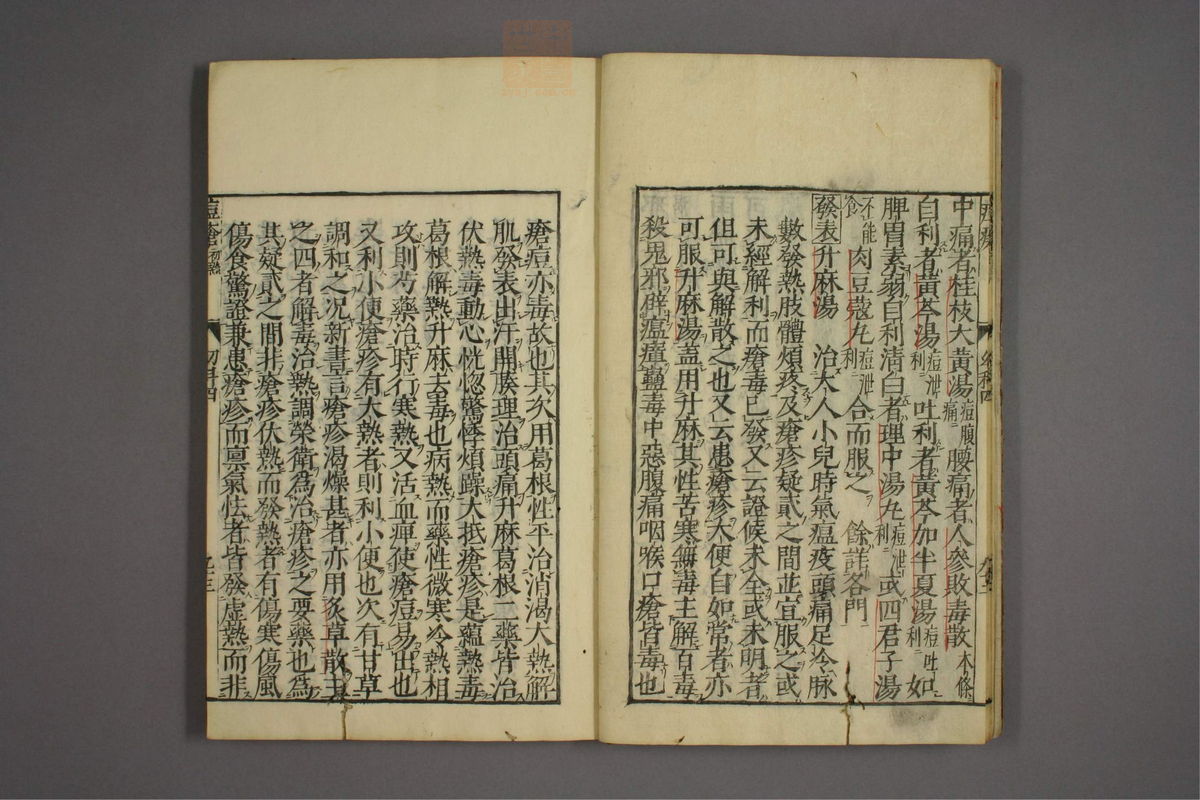 中痛者桂枝大黃湯痘腹痛腰痛者人參敗毒散本條
自利者黃芩湯痘泄利吐利者黃芩加半夏湯痘吐利如
脾胃素弱自利清白者理中湯丸痘泄利或四君子湯
不能食肉豆蔻丸痘泄利合而服之　餘詳各門
發表升麻湯　治大人小兒時氣瘟疫頭痛足冷脉
數發熱肢體煩疼及瘡疹疑貳之間並宜服之或
未經解利而瘡毒已發又云證候未全或未明者
但可與解散之也又云患瘡疹大便自如常者亦
可服升麻湯蓋用升麻其性苦寒無毒主解百毒
殺鬼邪辟瘟瘴蠱毒中惡腹痛咽喉口瘡皆毒也
瘡痘亦毒故也其次用葛根性平治消渴大熱解
肌發表出汗開腠理治頭痛升麻葛根二藥皆治
伏熱毒動心恍惚驚悸煩躁大抵瘡疹是蘊熱毒
葛根解熱升麻去毒也病熱而藥性微寒冷熱相
攻則芍藥治時行寒熱又活血痺使瘡痘易出也
又利小便瘡疹有大熱者則利小便也次有甘草
調和之況新書言瘡疹渴燥甚者亦用炙草散主
之四者解毒治熱調榮衛為治瘡疹之要藥也為
其疑貳之間非瘡疹伏熱而發熱者有傷寒傷風
傷食驚證兼患瘡疹而稟氣怯者皆發虛熱而非
痘瘡初熱
幼科四
九三